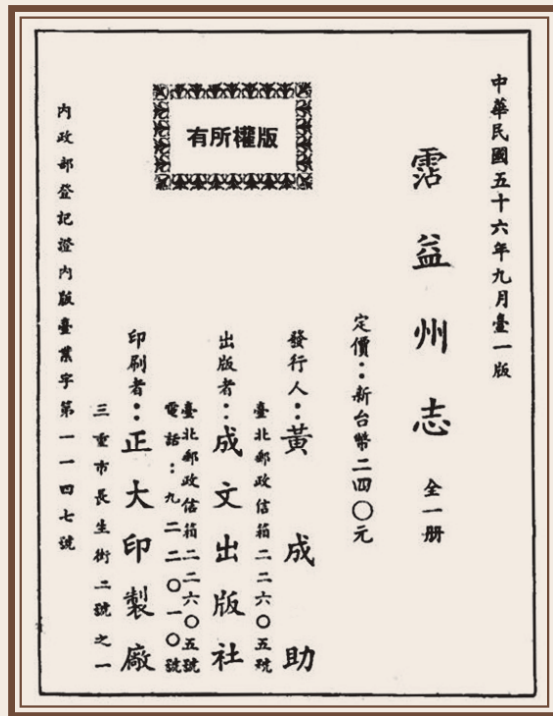 中華民國五十六年九月臺一版
霑益州志 全一册
定價：新台幣二四〇元
發行人：黃成助
臺北郵政信箱二二六〇五號
出版者：成文出版社
臺北郵政信箱二二六〇五號
電話：九二二〇一〇號
印刷者：正大印製廠
三重市長生街二號之一
內政部登記證內版臺業字第一一四七號
有所權版